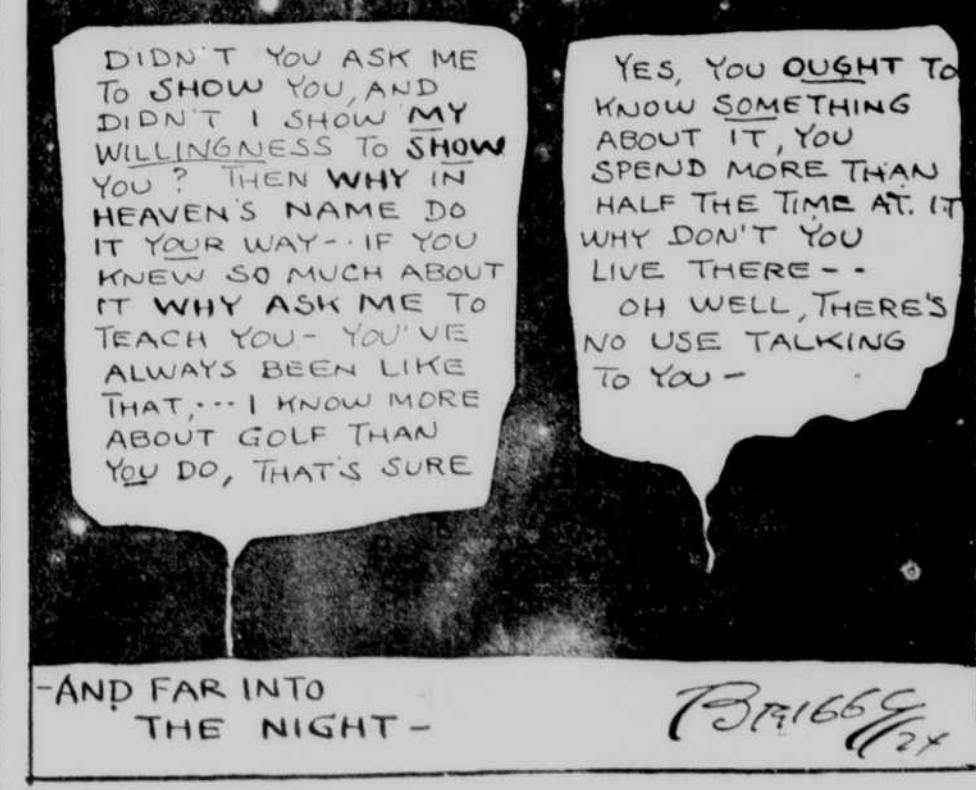 DIDN'T YOU ASK ME
TO SHOW YOU, AND
DIDN'T I SHOW MY
WILLINGNESS TO SHOW
YOU? THEN WHY IN
HEAVEN'S NAME DO
IT YOUR WAY-- IF YOU
KNEW SO MUCH ABOUT
IT WHY ASK ME TO
TEACH YOU- YOU'VE
ALWAYS BEEN LIKE
THAT,... I KNOW MORE
ABOUT GOLF THAN
YOU DO, THAT'S SURE
YES, YOU OUGHT TO
KNOW SOMETHING
ABOUT IT, YOU
SPEND MORE THAN
HALF THE TIME AT. IT
WHY DON'T YOU
LIVE THERE--
OH WELL, THERE'S
NO USE TALKING
TO YOU-
-AND FAR INTO
THE NIGHT-
BRIGGS
24